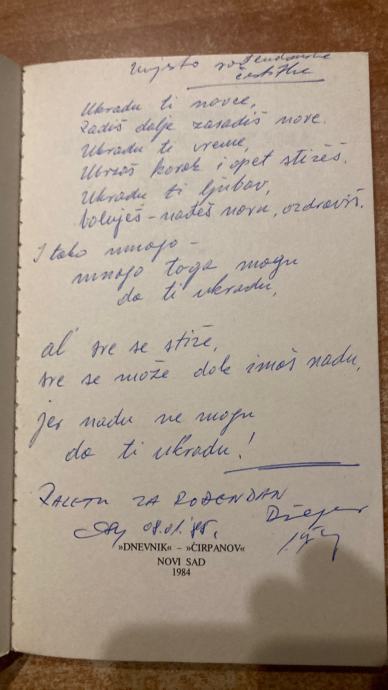 Umjesto rođendanske
čestitke
Ukradu ti novce,
Radiš dalje zaradiš nove.
Ukradu ti vreme,
Ubrzaš korak i opet stižeš.
Ukradu ti ljubav,
boluješ - nađeš novu, ozdraviš.
I tako mnogo -
mnogo toga mogu
da ti ukradu,
al' sve se stiže,
sve se može dok imaš nadu,
jer nadu ne mogu
da ti ukradu!
ZALETU ZA ROĐENDAN
08.01.'85.
»DNEVNIK« – »ĆIRPANOV«
NOVI SAD
1984